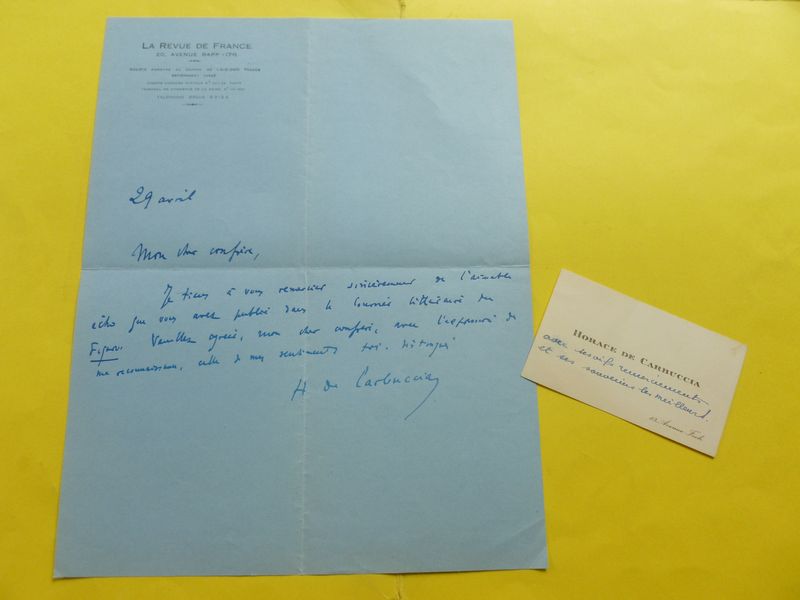 LA REVUE DE FRANCE
20, AVENUE RAPP
29 avril
Mon cher confrère,
Je tiens à vous remercier sincèrement de l'aimable
écho que vous avez publié dans le Courrier littéraire du
Figaro. Veuillez agréer, mon cher confrère, avec l'expression de
ma reconnaissance, celle de mes sentiments très distingués
H de Carbuccia
HORACE DE CARBUCCIA
avec ses vifs remerciements
et ses souvenirs les meilleurs.
Avenue Foch